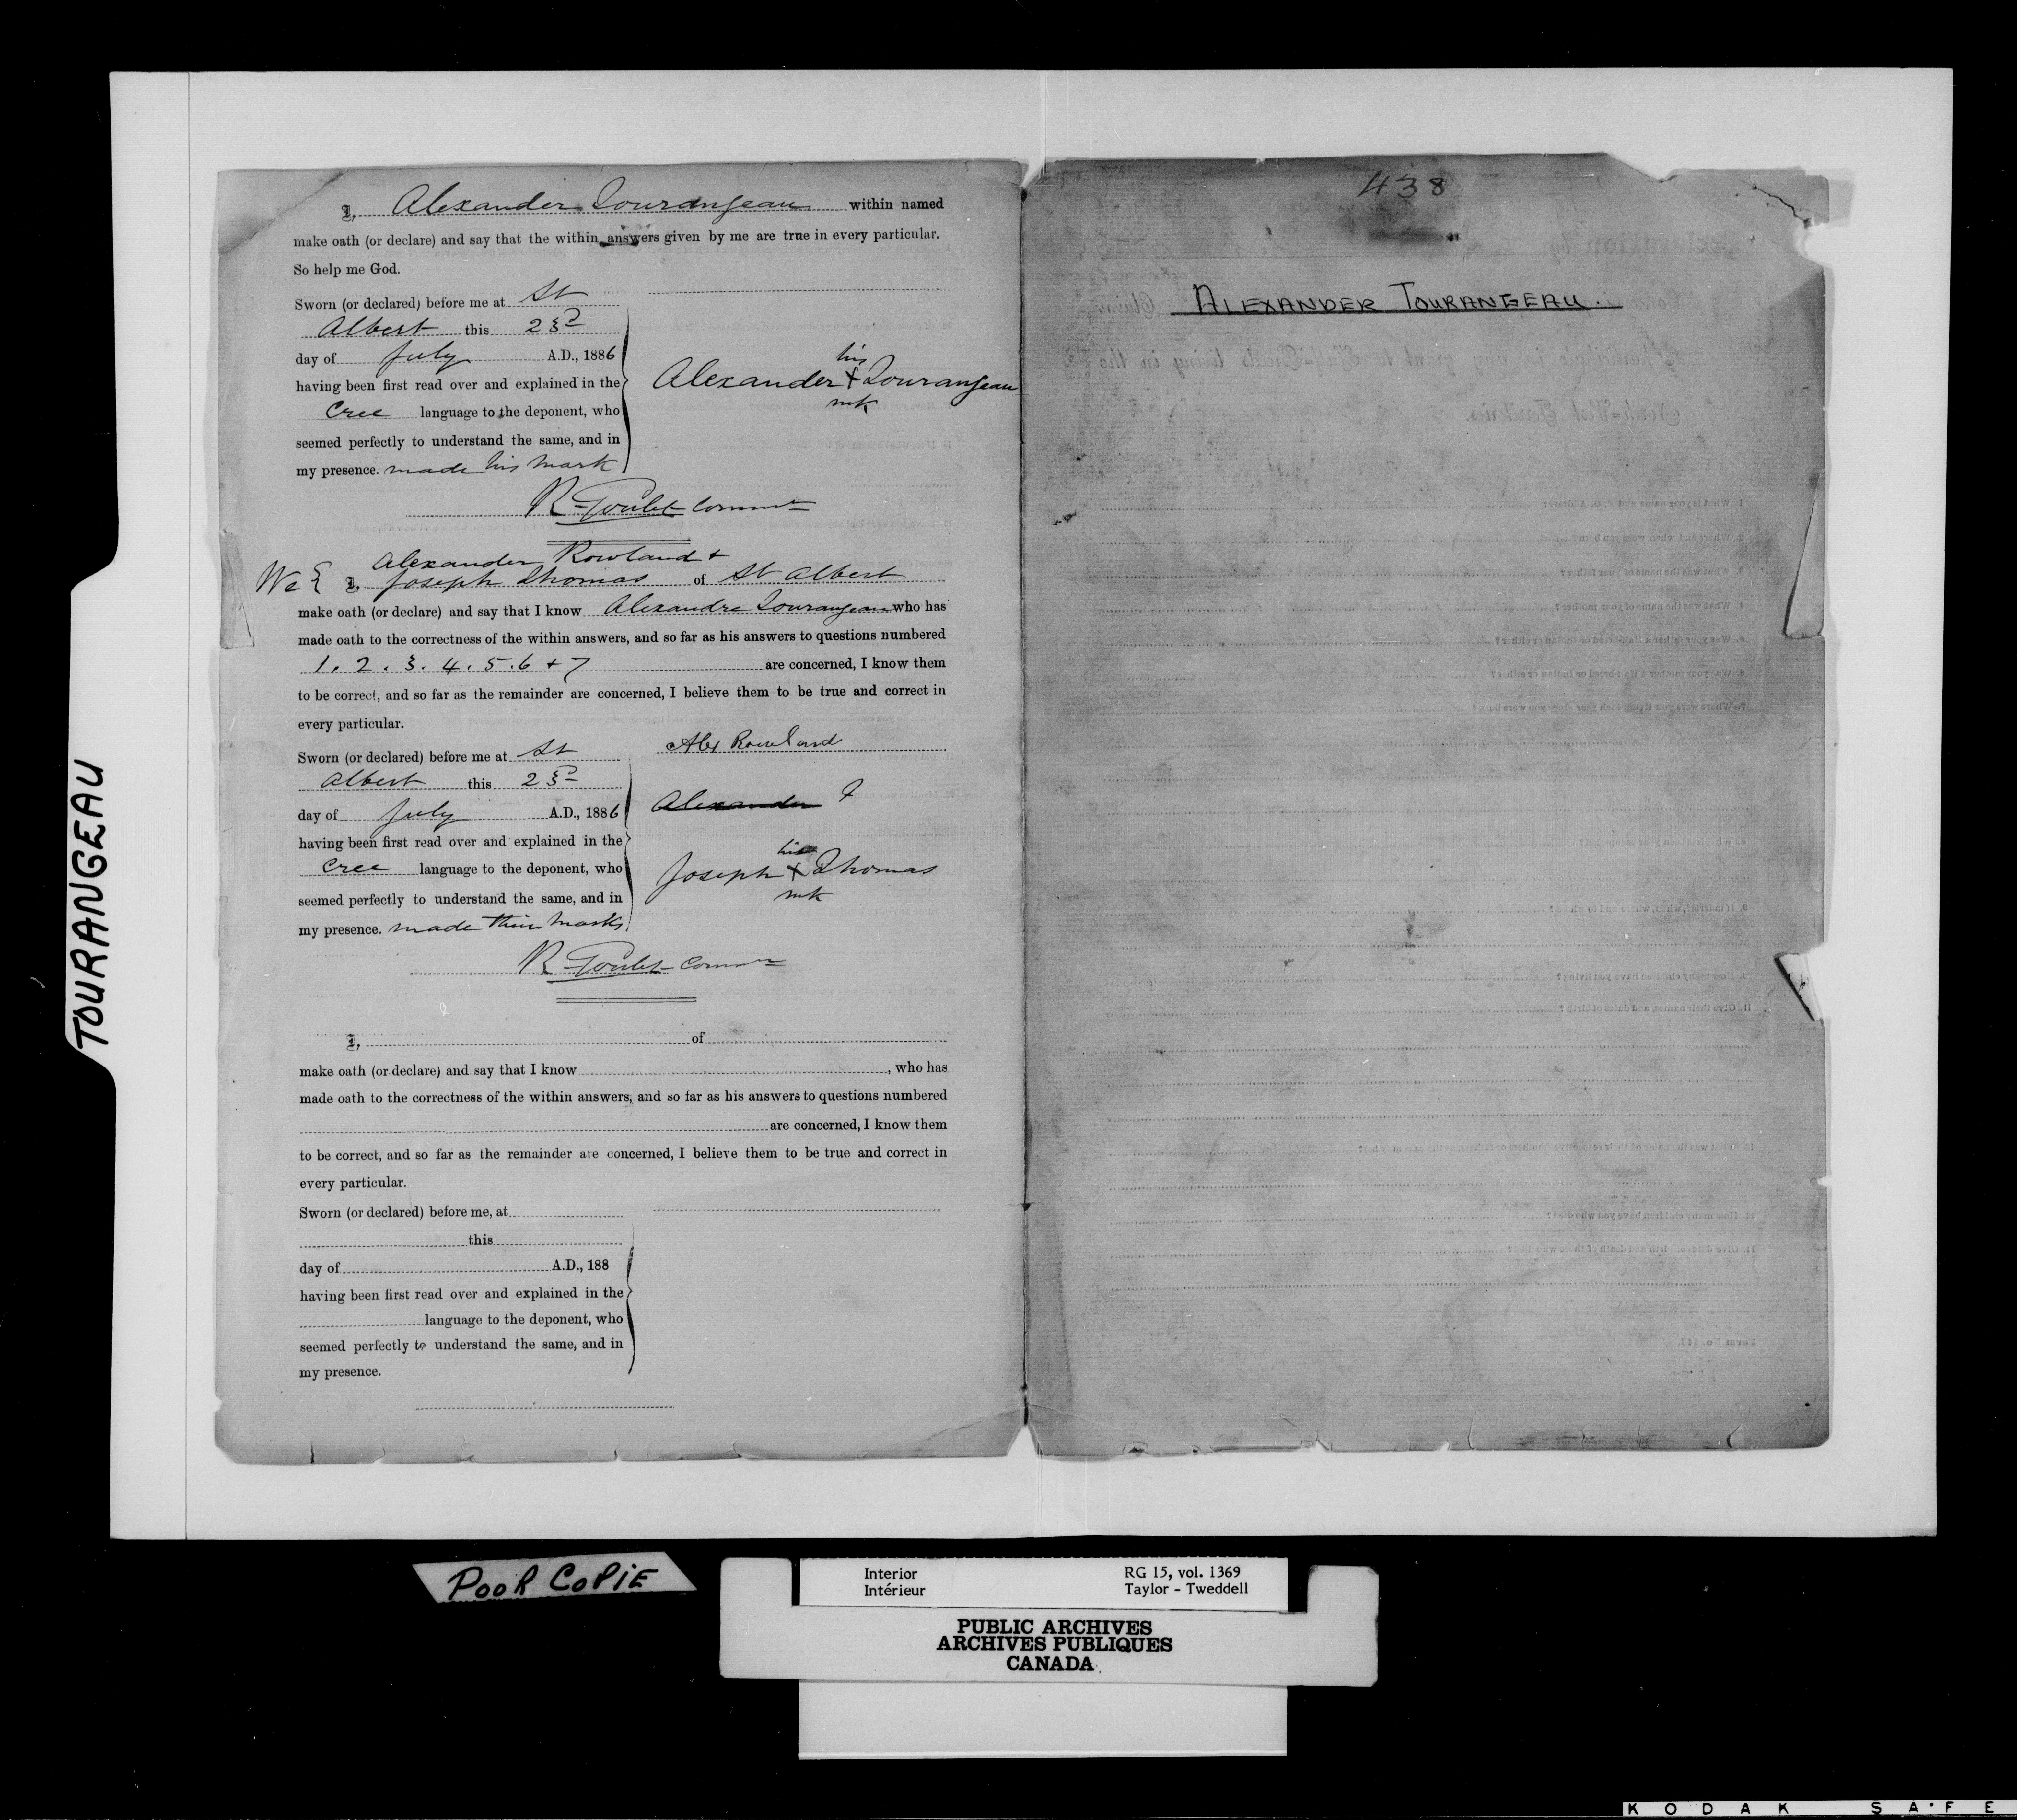 TOURANGEAU
I, Alexander Tourangeau within named
make oath (or declare) and say that the within answers given by me are true in every particular.
So help me God.
Sworn (or declared) before me at St
Albert this 23rd
day of July A.D., 1886
having been first read over and explained in the
Cree language to the deponent, who
seemed perfectly to understand the same, and in
my presence. made his mark
his
Alexander X Tourangeau
mk
R Goulet Commr
Alexander Rowland +
We { I, Joseph Thomas of St Albert
make oath (or declare) and say that I know Alexandre Tourangeau who has
made oath to the correctness of the within answers, and so far as his answers to questions numbered
1. 2. 3. 4. 5. 6 + 7 are concerned, I know them
to be correct, and so far as the remainder are concerned, I believe them to be true and correct in
every particular.
Sworn (or declared) before me at St
Albert this 23rd
day of July A.D., 1886
having been first read over and explained in the
Cree language to the deponent, who
seemed perfectly to understand the same, and in
my presence. made their marks
Alex Rowland
Alexander
his
Joseph X Thomas
mk
R Goulet Commr
I, of
make oath (or declare) and say that I know , who has
made oath to the correctness of the within answers, and so far as his answers to questions numbered
are concerned, I know them
to be correct, and so far as the remainder are concerned, I believe them to be true and correct in
every particular.
Sworn (or declared) before me, at
this
day of A.D., 188
having been first read over and explained in the
language to the deponent, who
seemed perfectly to understand the same, and in
my presence.
438
ALEXANDER TOURANGEAU.
POOR COPIE
Interior
Intérieur
RG 15, vol. 1369
Taylor - Tweddell
PUBLIC ARCHIVES
ARCHIVES PUBLIQUES
CANADA
KODAK SAFE